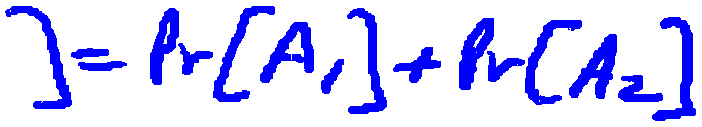 ] = Pr[A₁] + Pr[A₂]